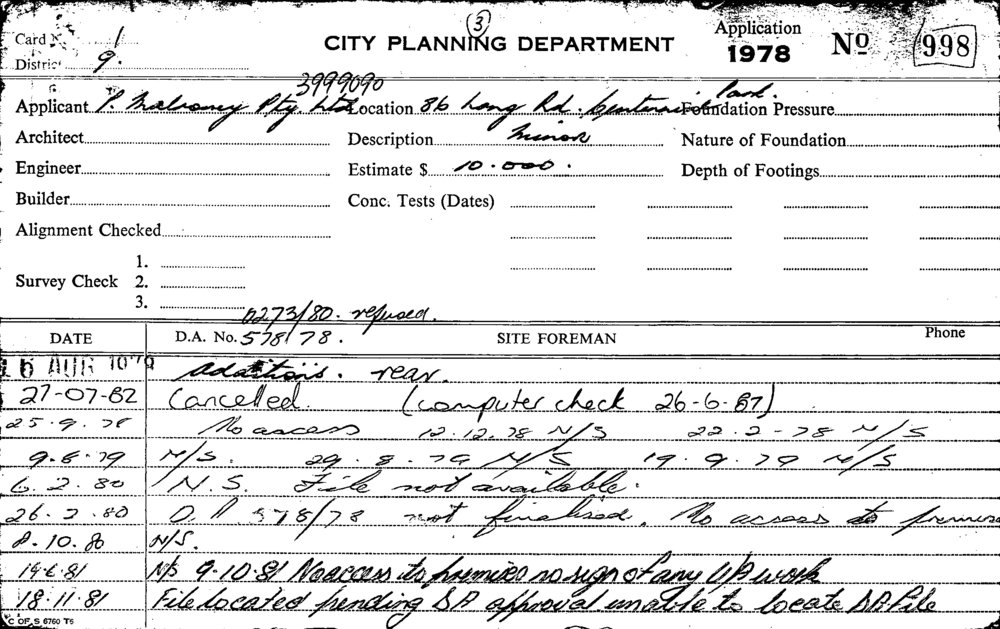 (3)
Card No. 1 CITY PLANNING DEPARTMENT Application 1978 No 998
District 9.
3999090
Applicant P. Mulroney Pty. Ltd Location 86 Lang Rd. Centennial Park. Foundation Pressure
Architect Description Minor Nature of Foundation
Engineer Estimate $ 10.000. Depth of Footings
Builder Conc. Tests (Dates)
Alignment Checked
1.
Survey Check 2.
3.
0273/80. refused.
DATE D.A. No. 578/78. SITE FOREMAN Phone
16 AUG 1978 Additions. rear.
27-07-82 Cancelled. (computer check 26-6-87)
25.9.78 No access 12.12.78 N/S 22-2-78 N/S
9.6.79 N/S. 29.8.79 N/S 19.9.79 N/S
6.2.80 N.S. File not available.
26.2.80 D.A 578/78 not finalised. No access to
8.10.80 N/S.
19.6.81 N/S 9.10.81 No access to premises no sign of any work
18.11.81 File located pending BA approval unable to locate BA File
C OF S 6760 T5